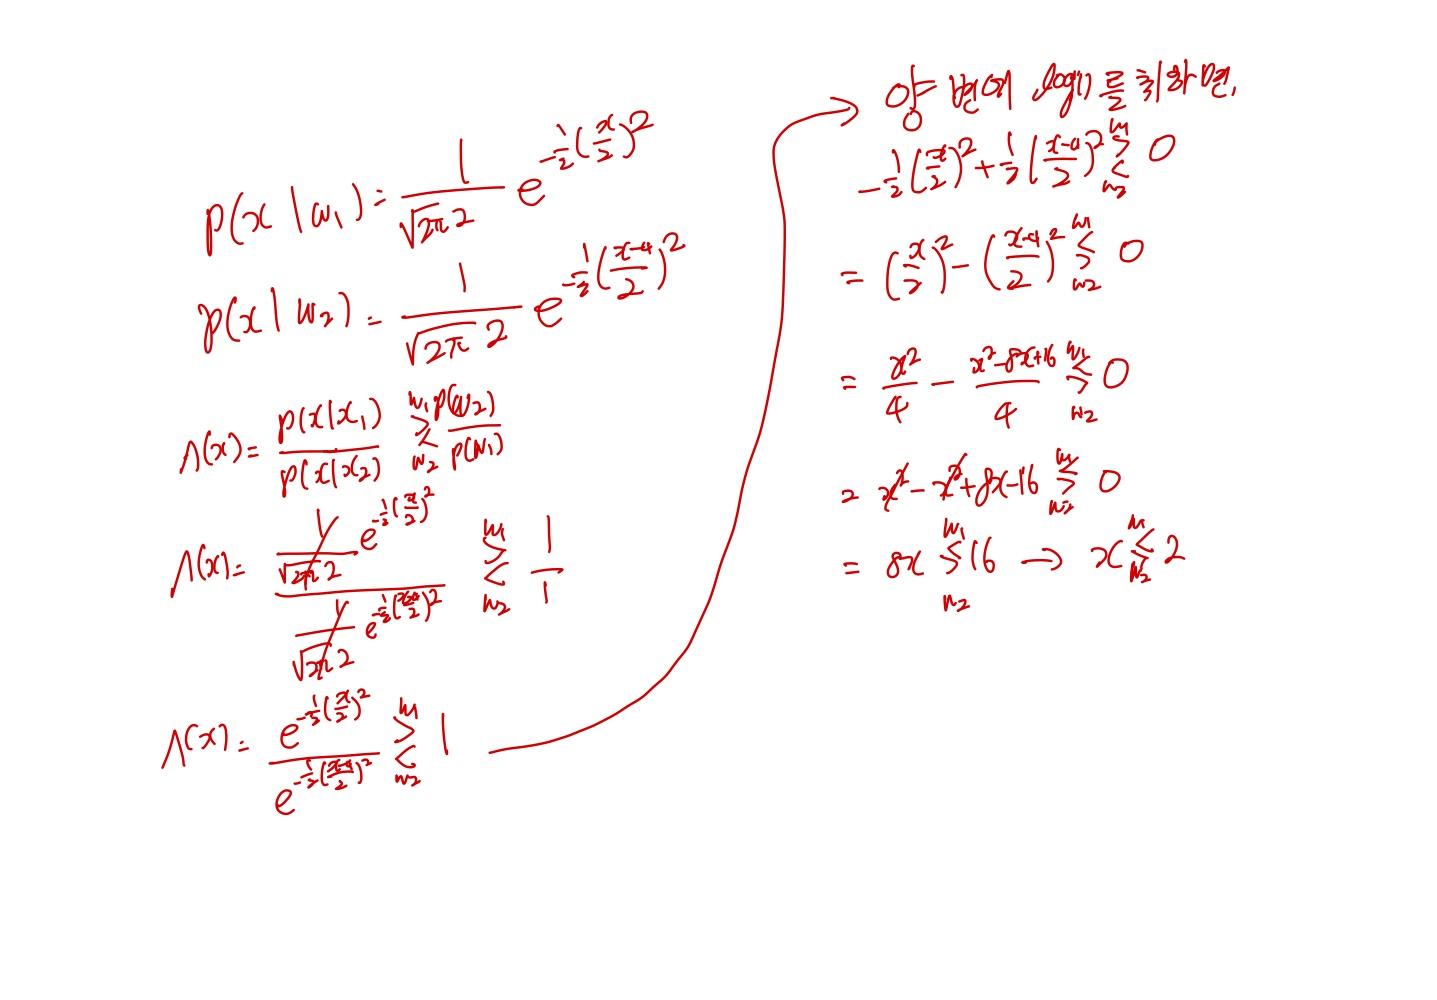 p(x|w₁) = 1/(√2π 2) e^(-1/2(x/2)²)
p(x|w₂) = 1/(√2π 2) e^(-1/2((x-4)/2)²)
Λ(x) = p(x|x₁)/p(x|x₂) ≷ (w₁, w₂) p(w₂)/p(w₁)
Λ(x) = (1/(√2π 2) e^(-1/2(x/2)²)) / (1/(√2π 2) e^(-1/2((x-4)/2)²)) ≷ (w₁, w₂) 1/1
Λ(x) = e^(-1/2(x/2)²) / e^(-1/2((x-4)/2)²) ≷ (w₁, w₂) 1
양변에 log()를 취하면,
-1/2(x/2)² + 1/2((x-4)/2)² ≷ (w₁, w₂) 0
= (x/2)² - ((x-4)/2)² ≶ (w₁, w₂) 0
= x²/4 - (x²-8x+16)/4 ≶ (w₁, w₂) 0
= x² - x² + 8x - 16 ≶ (w₁, w₂) 0
= 8x ≶ (w₁, w₂) 16 → x ≶ (w₁, w₂) 2